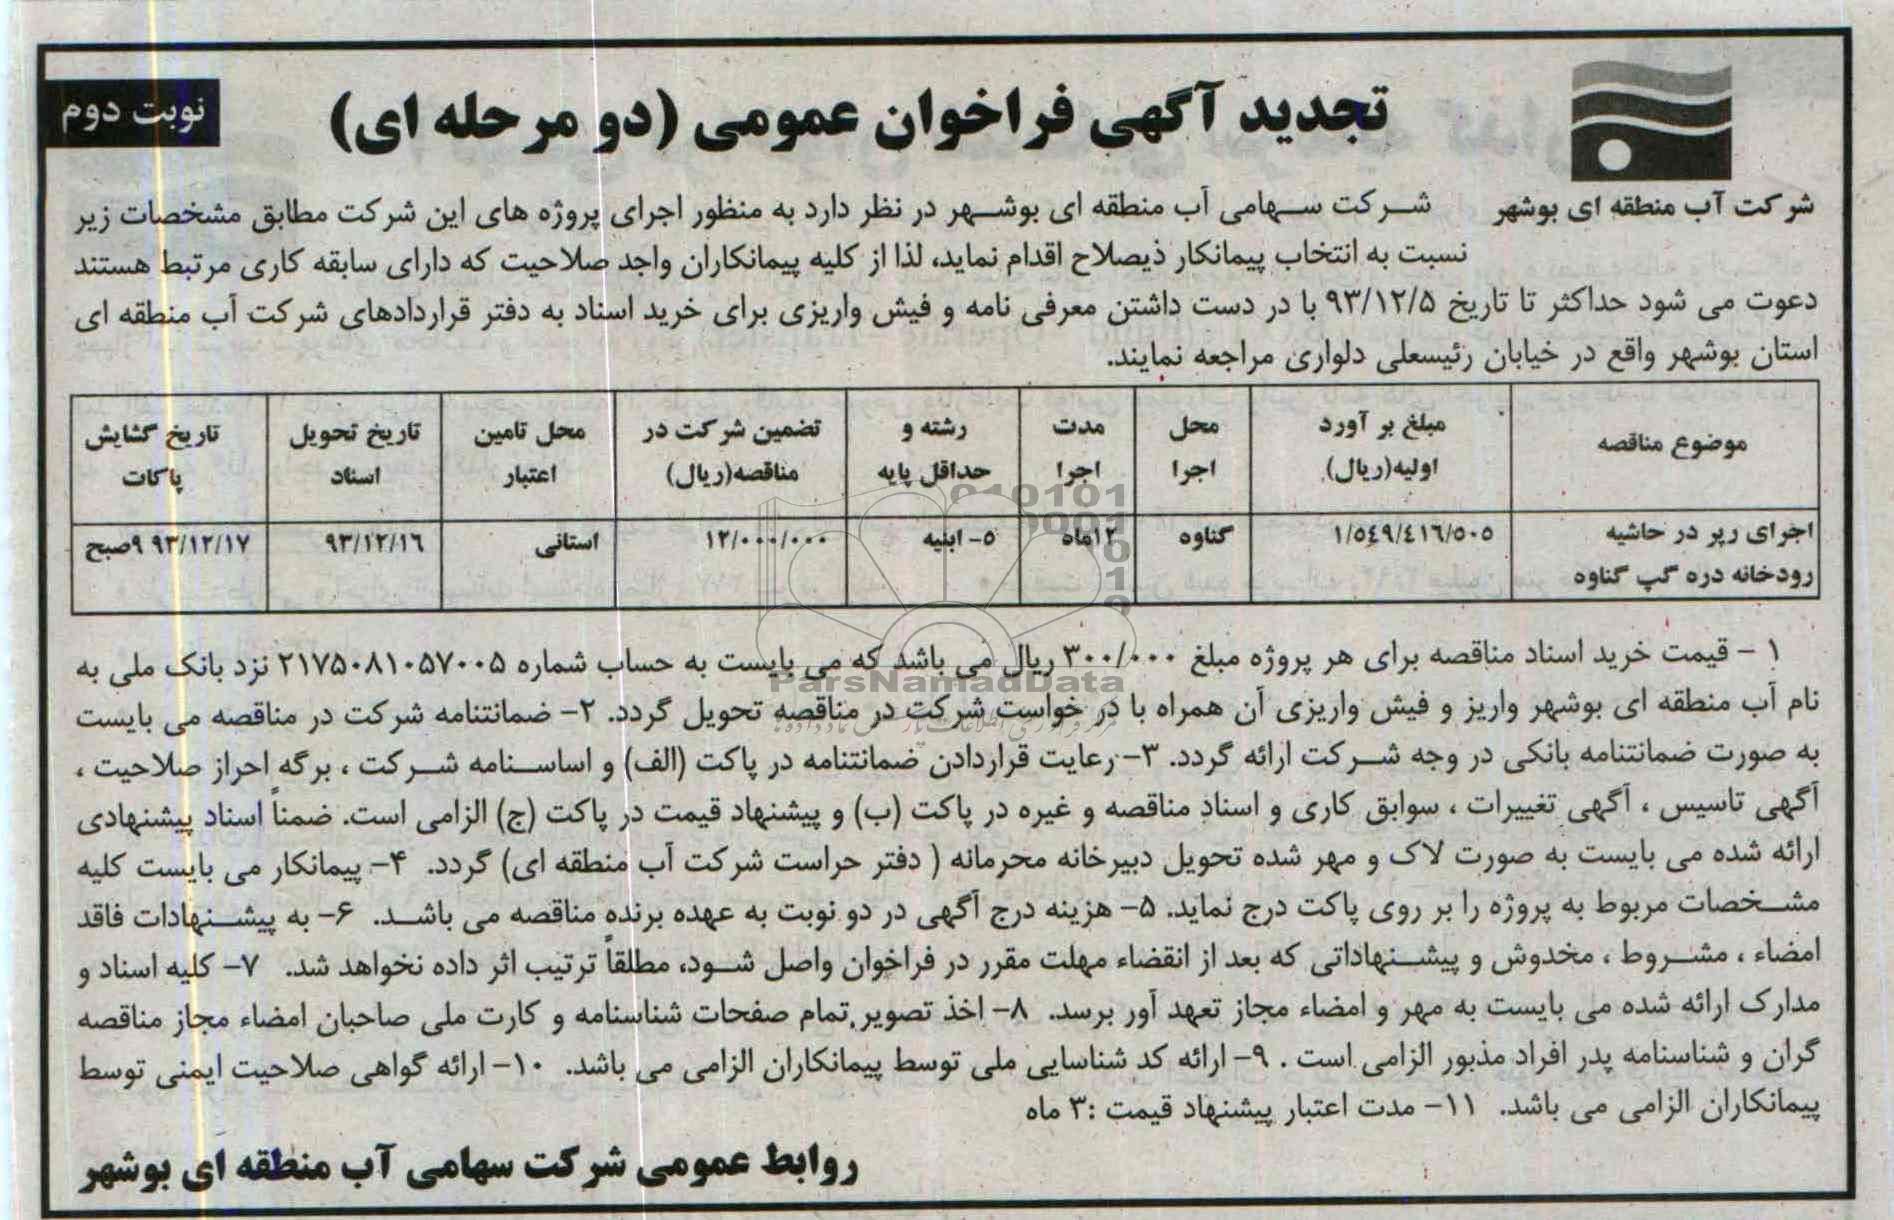 نوبت دوم
تجدید آگهی فراخوان عمومی (دو مرحله ای)
شرکت آب منطقه ای بوشهر
شرکت سهامی آب منطقه ای بوشهر در نظر دارد به منظور اجرای پروژه های این شرکت مطابق مشخصات زیر
نسبت به انتخاب پیمانکار ذیصلاح اقدام نماید، لذا از کلیه پیمانکاران واجد صلاحیت که دارای سابقه کاری مرتبط هستند
دعوت می شود حداکثر تا تاریخ ۹۳/۱۲/۵ با در دست داشتن معرفی نامه و فیش واریزی برای خرید اسناد به دفتر قراردادهای شرکت آب منطقه ای
استان بوشهر واقع در خیابان رئیسعلی دلواری مراجعه نمایند.
موضوع مناقصه | مبلغ بر آورد اولیه(ریال) | محل اجرا | مدت اجرا | رشته و حداقل پایه | تضمین شرکت در مناقصه(ریال) | محل تامین اعتبار | تاریخ تحویل اسناد | تاریخ گشایش پاکات
اجرای رپر در حاشیه رودخانه دره گپ گناوه | ۱/۵۴۹/۴۱۶/۵۰۵ | گناوه | ۱۲ماه | ۵- ابنیه | ۱۲/۰۰۰/۰۰۰ | استانی | ۹۳/۱۲/۱۶ | ۹۳/۱۲/۱۷ ۹صبح
۱ - قیمت خرید اسناد مناقصه برای هر پروژه مبلغ ۳۰۰/۰۰۰ ریال می باشد که می بایست به حساب شماره ۲۱۷۵۰۸۱۰۵۷۰۰۵ نزد بانک ملی به
نام آب منطقه ای بوشهر واریز و فیش واریزی آن همراه با در خواست شرکت در مناقصه تحویل گردد. ۲- ضمانتنامه شرکت در مناقصه می بایست
به صورت ضمانتنامه بانکی در وجه شرکت ارائه گردد. ۳- رعایت قراردادن ضمانتنامه در پاکت (الف) و اساسنامه شرکت ، برگه احراز صلاحیت ،
آگهی تاسیس ، آگهی تغییرات ، سوابق کاری و اسناد مناقصه و غیره در پاکت (ب) و پیشنهاد قیمت در پاکت (ج) الزامی است. ضمناً اسناد پیشنهادی
ارائه شده می بایست به صورت لاک و مهر شده تحویل دبیرخانه محرمانه ( دفتر حراست شرکت آب منطقه ای) گردد. ۴- پیمانکار می بایست کلیه
مشخصات مربوط به پروژه را بر روی پاکت درج نماید. ۵- هزینه درج آگهی در دو نوبت به عهده برنده مناقصه می باشد. ۶- به پیشنهادات فاقد
امضاء ، مشروط ، مخدوش و پیشنهاداتی که بعد از انقضاء مهلت مقرر در فراخوان واصل شود، مطلقاً ترتیب اثر داده نخواهد شد. ۷- کلیه اسناد و
مدارک ارائه شده می بایست به مهر و امضاء مجاز تعهد آور برسد. ۸- اخذ تصویر تمام صفحات شناسنامه و کارت ملی صاحبان امضاء مجاز مناقصه
گران و شناسنامه پدر افراد مذبور الزامی است . ۹- ارائه کد شناسایی ملی توسط پیمانکاران الزامی می باشد. ۱۰- ارائه گواهی صلاحیت ایمنی توسط
پیمانکاران الزامی می باشد. ۱۱- مدت اعتبار پیشنهاد قیمت :۳ ماه
روابط عمومی شرکت سهامی آب منطقه ای بوشهر
ParsNamadData